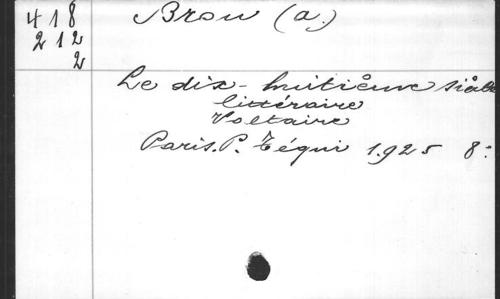 418
212
2
Brou (a.)
Le dix-huitième siècle
littéraire
Voltaire
Paris. P. Téqui 1925 8: